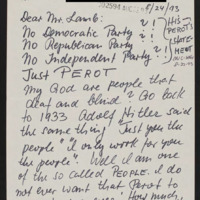 8/24/93
Dear Mr. Lamb:
No Democratic Party ? !
No Republican Party ? !!
No Independent Party ? !!
HIS
PEROT'S
HATE
MEET
Just PEROT
My God are people that
deaf and blind? Go back
to 1933 Adolf Hitler said
the same thing "Just you the
people" "I only work for you
the people". Well I am one
of the so called PEOPLE. I do
not ever want that Perot to
How much,